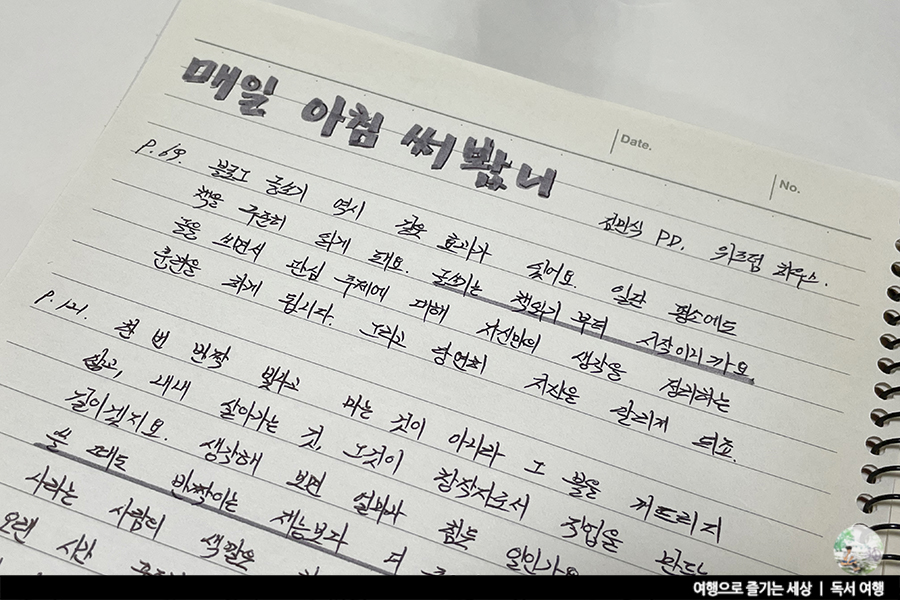 매일 아침 써봤니
Date.
No.
김민식 PD. 위즈덤 하우스.
p.69. 블로그 글쓰기 역시 같은 효과가 있어요. 일단 평소에도
책을 꾸준히 읽게 돼요. 글쓰기는 책읽기 부터 시작이니까요.
글을 쓰면서 관심 주제에 대해 자신만의 생각을 정리하는
훈련을 하게 됩니다. 그리고 당연히 시간을 살리게 되죠.
p.121. 한 번 반짝 빛나고 마는 것이 아니라 그 불을 꺼트리지
않고, 내내 살아가는 것, 그것이 창작자로서 직업을 만드는
길이겠지요. 생각해 보면 얼마나 힘든 일인가요
쓸 때도 반짝이는 재능보다 더
사라는 사람의 색깔은
오랜 시간
여행으로 즐기는 세상 | 독서 여행